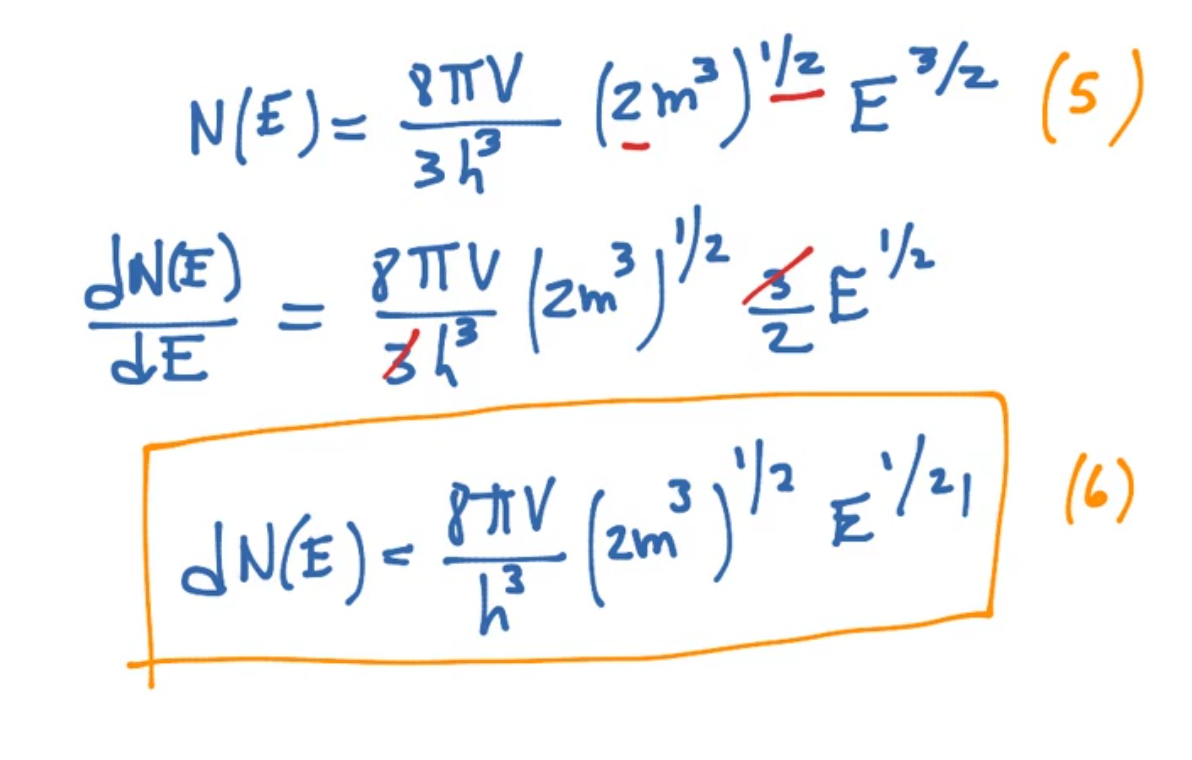 N(E) = 8πV / 3h³ (2m³)^1/2 E^3/2 (5)
dN(E) / dE = 8πV / 3h³ (2m³)^1/2 3/2 E^1/2
dN(E) = 8πV / h³ (2m³)^1/2 E^1/2 1 (6)